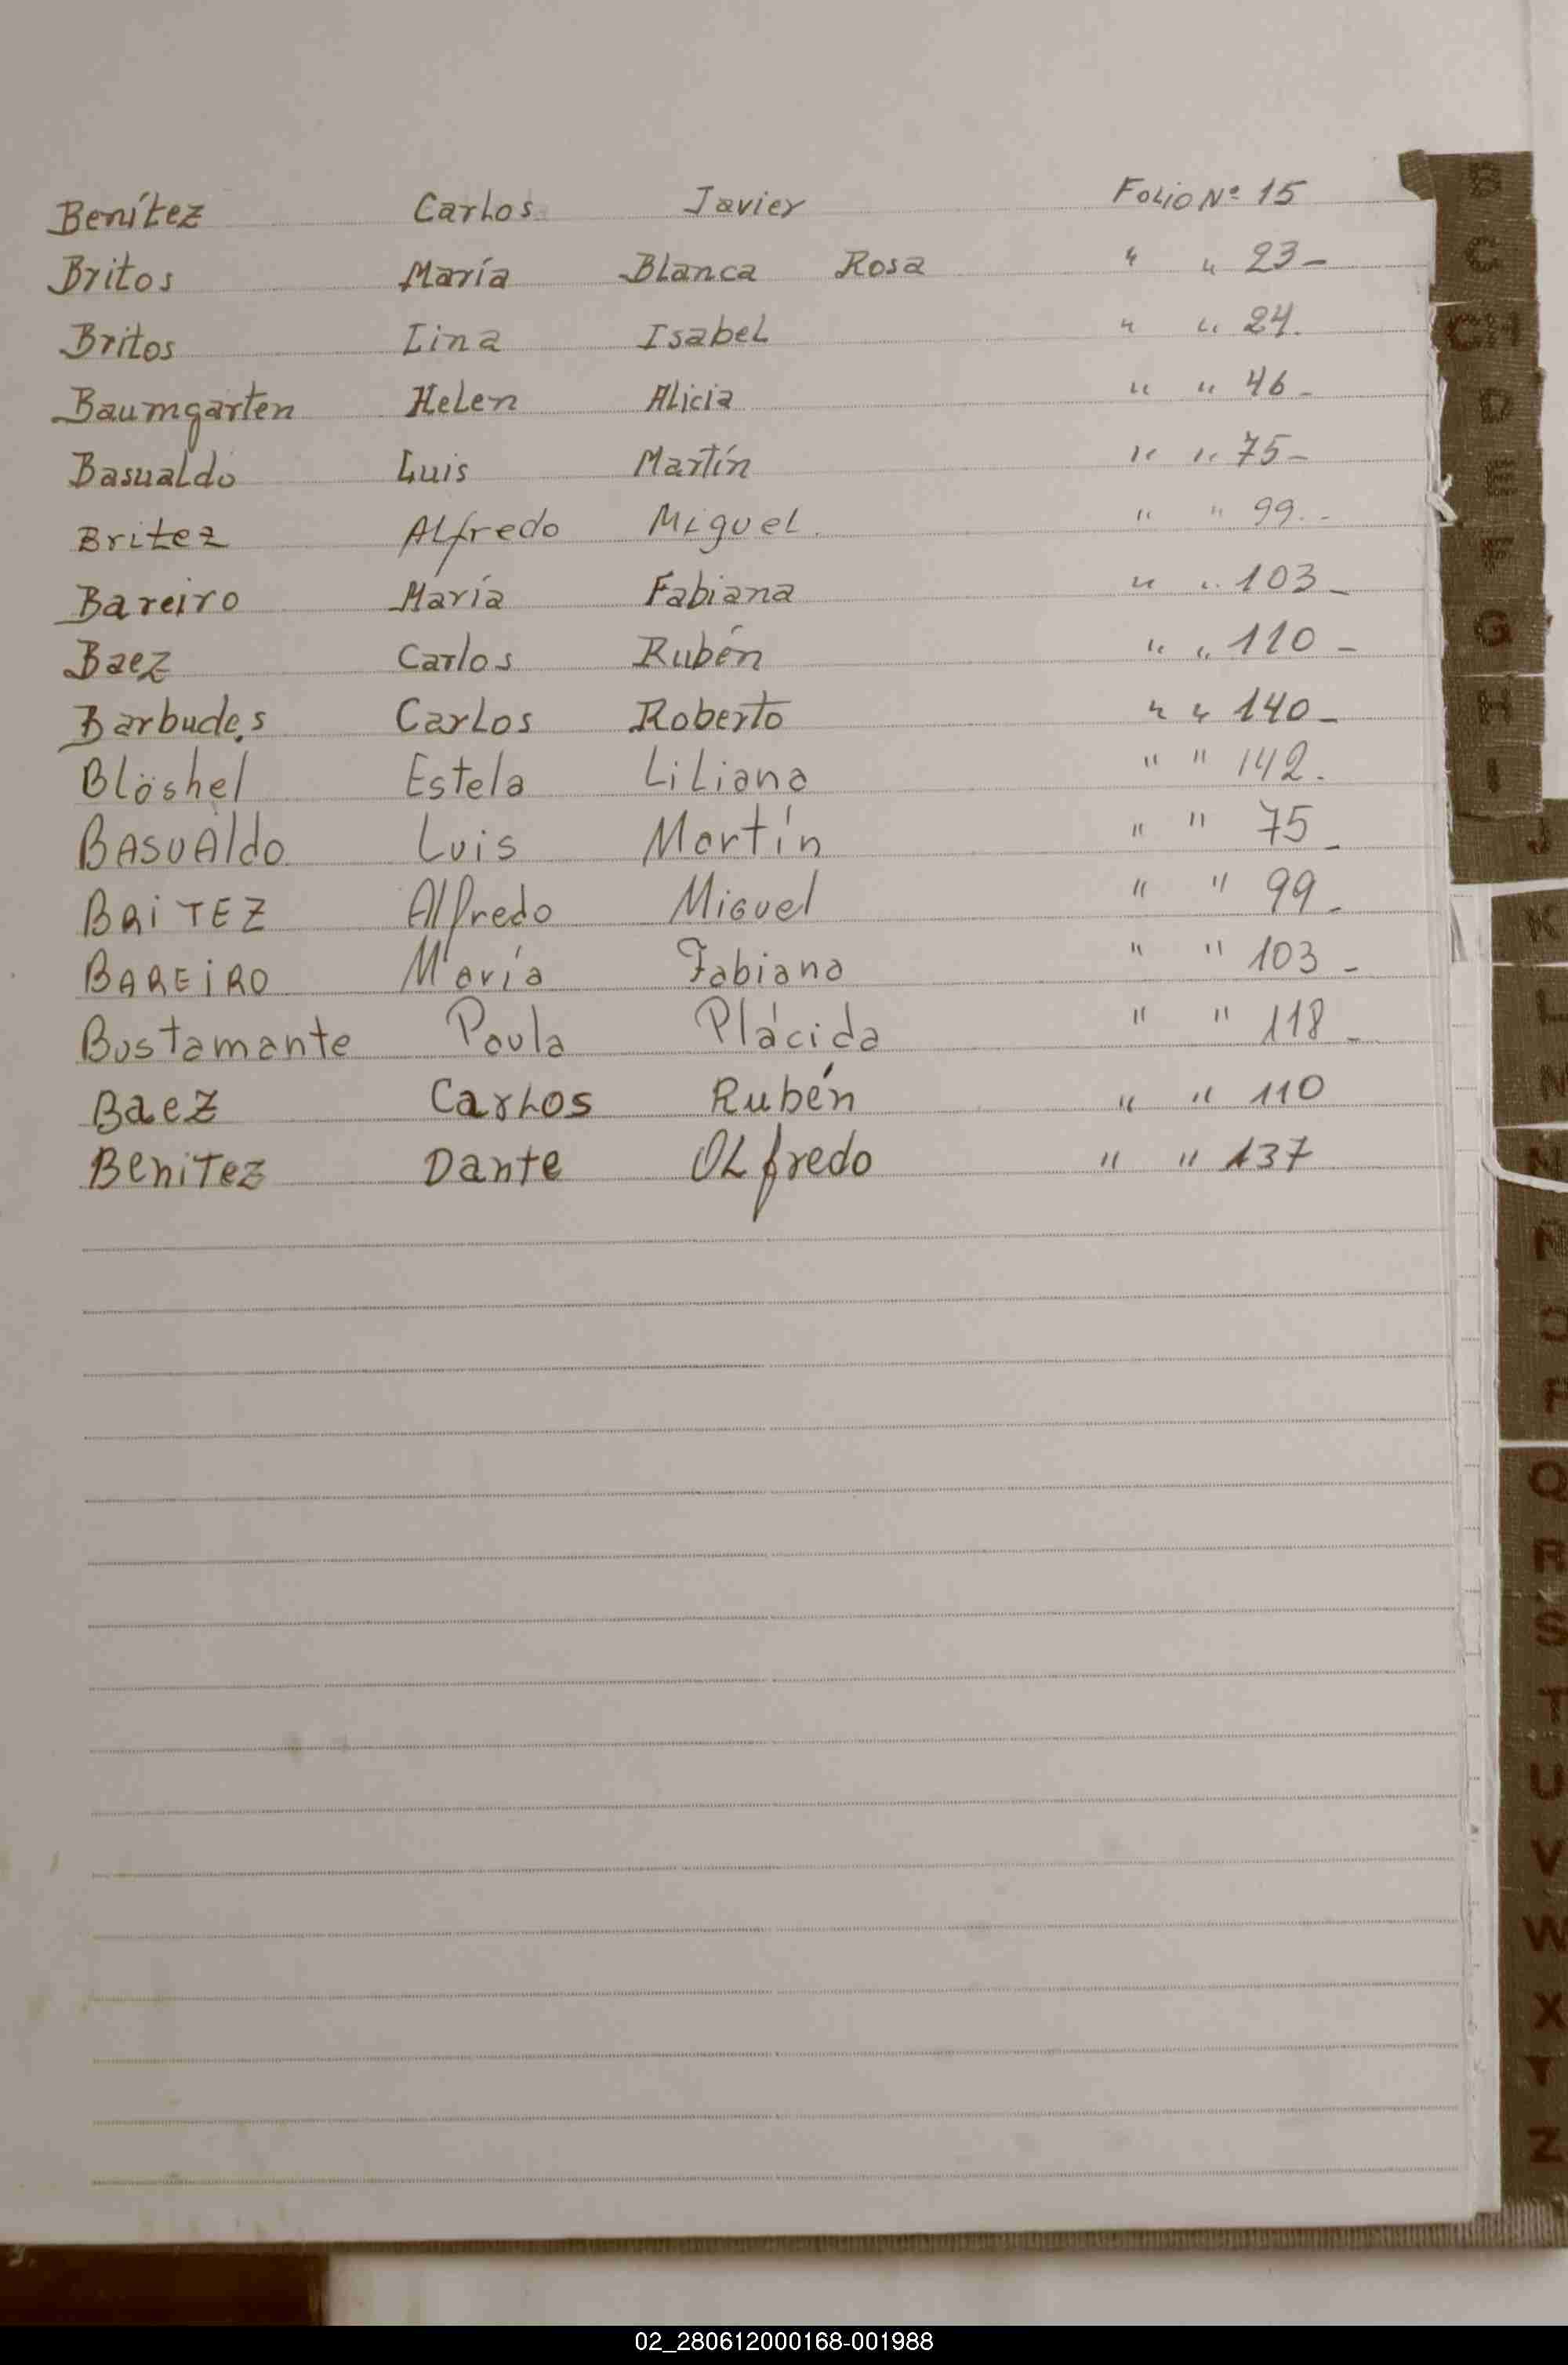 Benítez Carlos Javier Folio Nº 15
Britos María Blanca Rosa " " 23-
Britos Lina Isabel " " 24.
Baumgarten Helen Alicia " " 46-
Basualdo Luis Martín " " 75-
Britez Alfredo Miguel. " " 99.-
Bareiro María Fabiana " " 103-
Baez Carlos Rubén " " 110-
Barbudes Carlos Roberto " " 140-
Blöshel Estela Liliana " " 142.
BASUAldo Luis Martín " " 75-
BRiTEZ Alfredo Miguel " " 99-
BAREiRO María Fabiana " " 103-
Bustamante Paula Plácida " " 118-
Baez Carlos Rubén " " 110
Benitez Dante OLfredo " " 137
B
C
CH
D
E
F
G
H
I
J
K
L
M
N
Ñ
O
P
Q
R
S
T
U
V
W
X
Y
Z
02_280612000168-001988